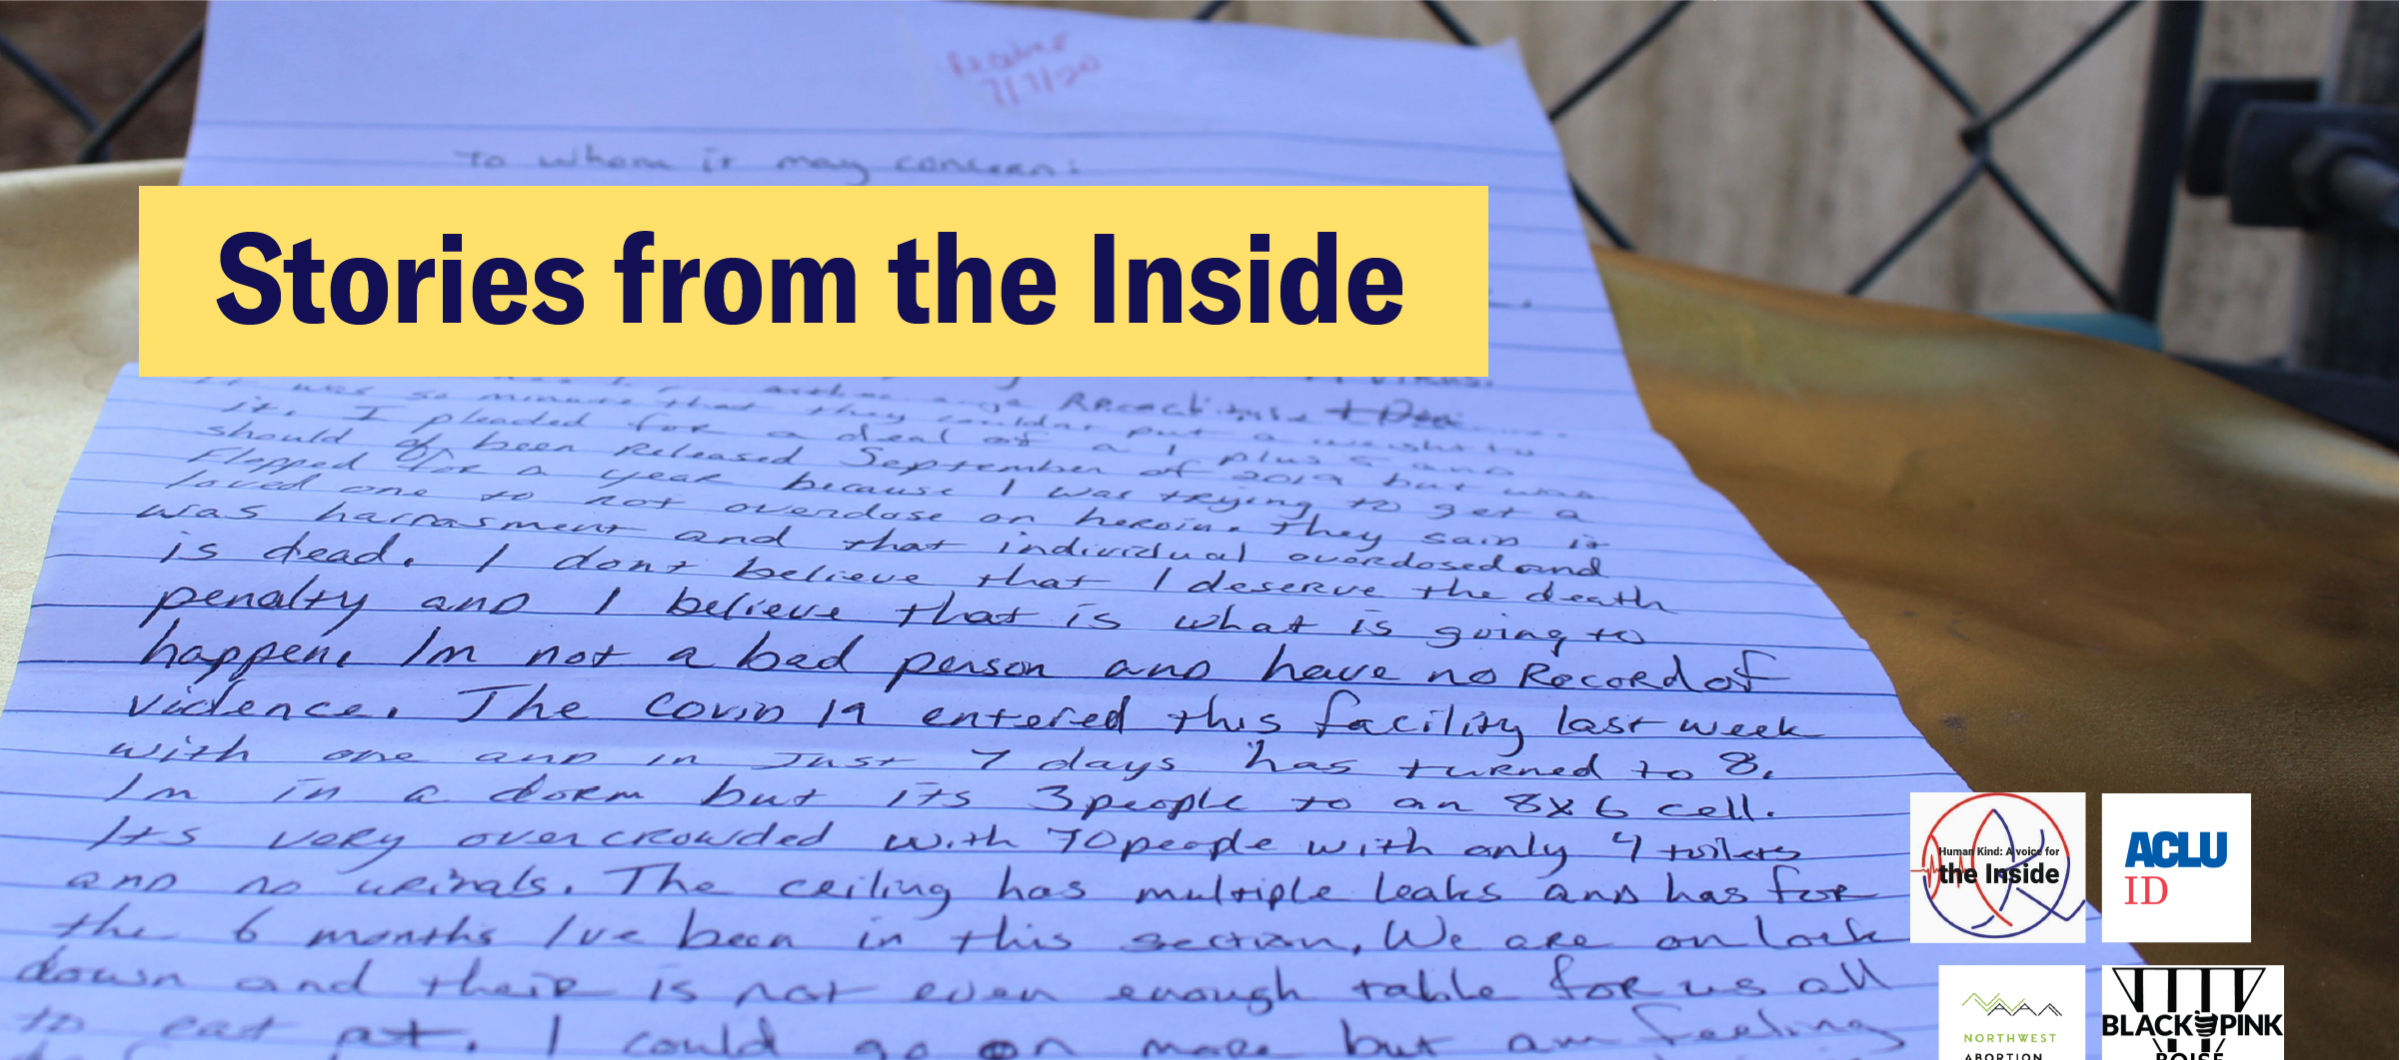 7/7/20
To whom it may concern:
Stories from the Inside
it was so minute that they couldnt put a weight to
it. I pleaded for a deal of a 1 plus 5 and
should of been Released September of 2019 but was
flopped for a year because I was trying to get a
loved one to not overdose on heroin. They said it
was harrasment and that individual overdosed and
is dead. I dont believe that I deserve the death
penalty and I believe that is what is going to
happen. Im not a bad person and have no Record of
violence. The Covid 19 entered this facility last week
with one and in Just 7 days has turned to 8.
Im in a dorm but its 3 people to an 8x6 cell.
Its very overcrowded with 70 people with only 4 toilets
and no urinals. The ceiling has multiple leaks and has for
the 6 months Ive been in this section. We are on lock
down and their is not even enough table for us all
to eat at. I could go on more but am feeling
Human Kind: A voice for
the Inside
ACLU
ID
NORTHWEST
ABORTION
BLACK PINK
BOISE